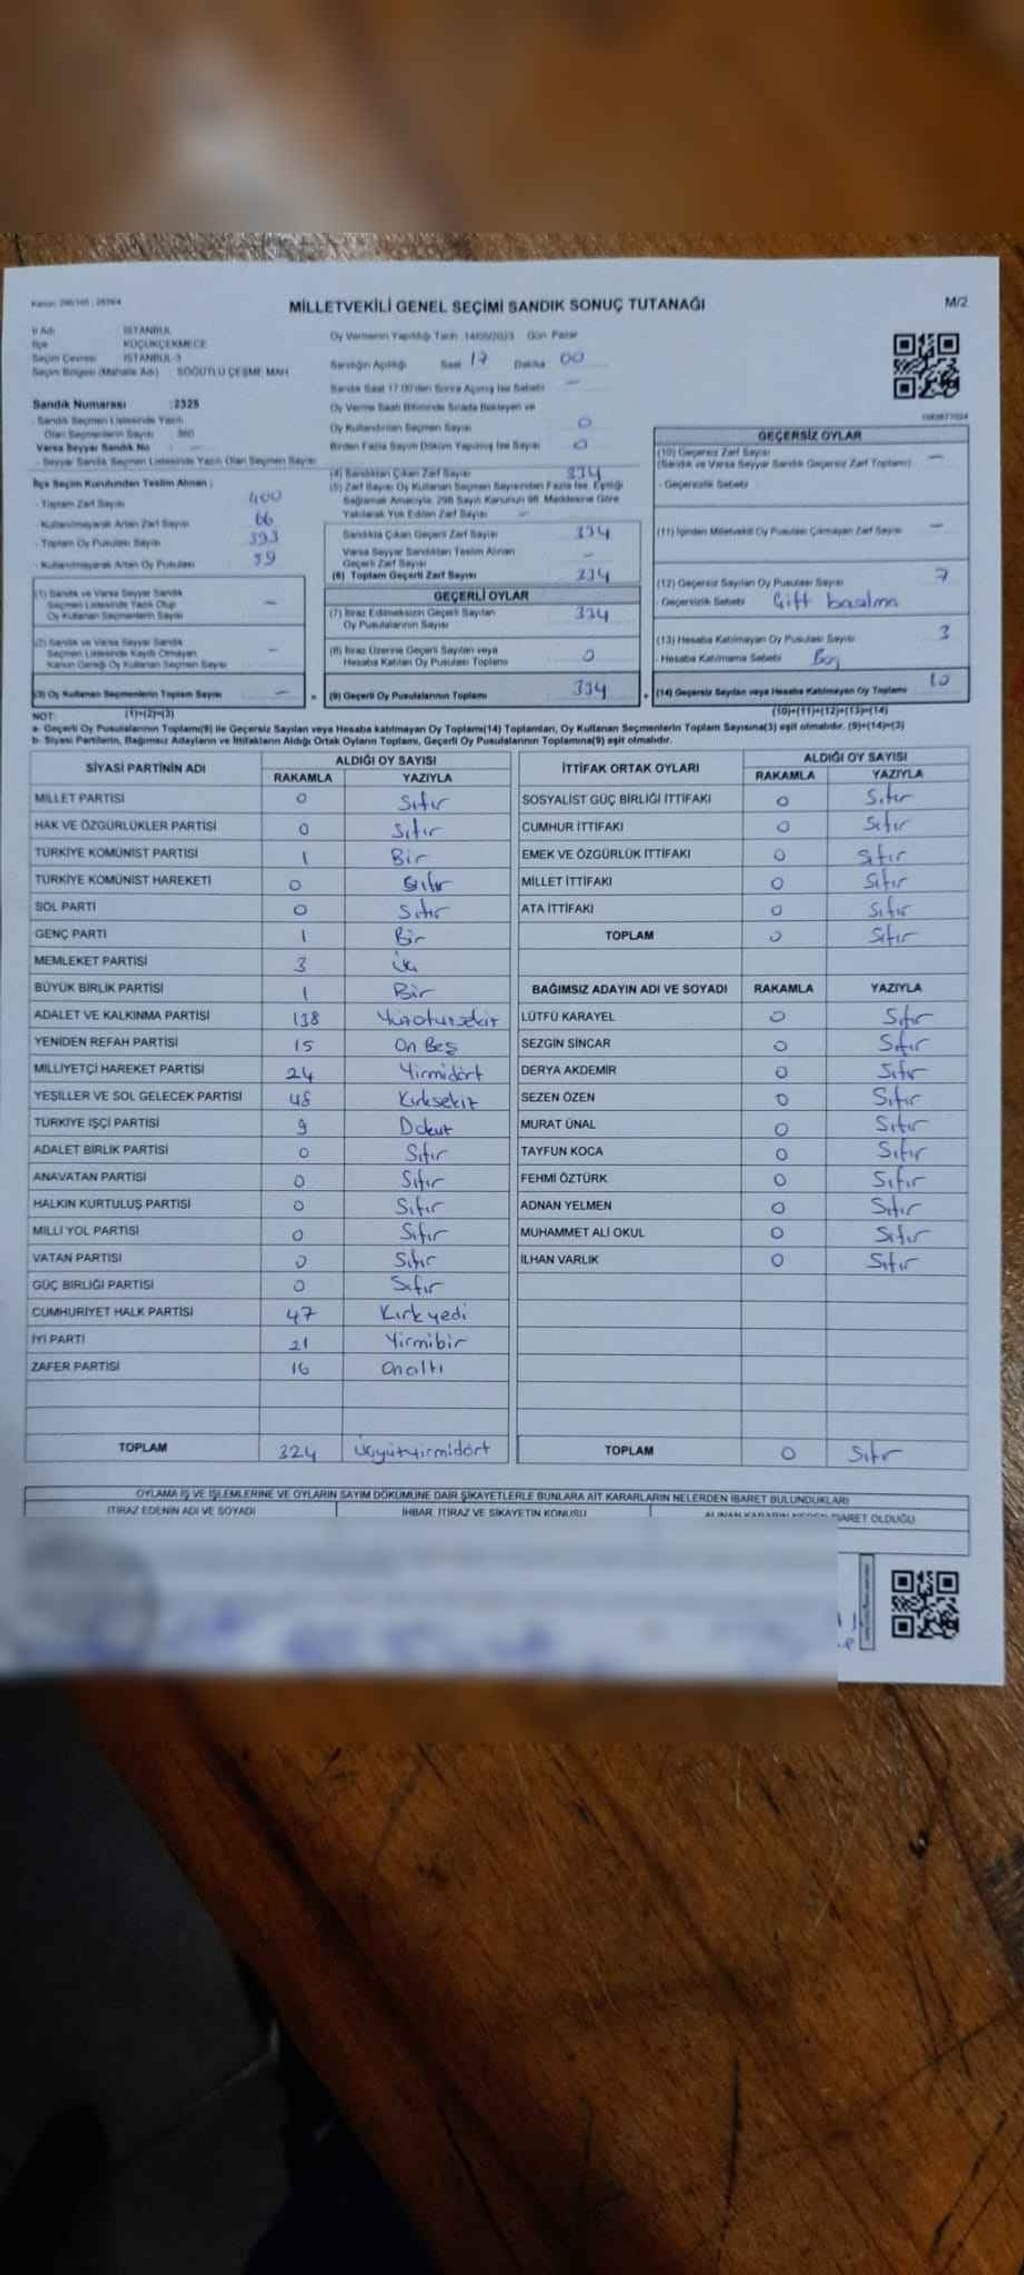 Kanun: 298/105 : 2839/4
MİLLETVEKİLİ GENEL SEÇİMİ SANDIK SONUÇ TUTANAĞI
M/2
İl Adı İSTANBUL
İlçe KÜÇÜKÇEKMECE
Seçim Çevresi İSTANBUL-3
Seçim Bölgesi (Mahalle Adı) : SÖĞÜTLÜ ÇEŞME MAH.
Sandık Numarası :2325
- Sandık Seçmen Listesinde Yazılı
Olan Seçmenlerin Sayısı
Varsa Seyyar Sandık No
- Seyyar Sandık Seçmen Listesinde Yazılı Olan Seçmen Sayısı
İlçe Seçim Kurulundan Teslim Alınan ;
- Toplam Zarf Sayısı 400
- Kullanılmayarak Artan Zarf Sayısı 66
- Toplam Oy Pusulası Sayısı 393
- Kullanılmayarak Artan Oy Pusulası 59
(1) Sandık ve Varsa Seyyar Sandık
Seçmen Listesinde Yazılı Olup
Oy Kullanan Seçmenlerin Sayısı -
(2) Sandık ve Varsa Seyyar Sandık
Seçmen Listesinde Kayıtlı Olmayan
Kanun Gereği Oy Kullanan Seçmen Sayısı -
(3) Oy Kullanan Seçmenlerin Toplam Sayısı -
(1)+(2)=(3)
Oy Vermenin Yapıldığı Tarih : 14/05/2023 Gün Pazar
Sandığın Açıldığı Saat 17 Dakika 00
Sandık Saat 17:00'den Sonra Açılmış İse Sebebi -
Oy Verme Saati Bitiminde Sırada Bekleyen ve
Oy Kullandırılan Seçmen Sayısı 0
Birden Fazla Sayım Döküm Yapılmış İse Sayısı 0
(4) Sandıktan Çıkan Zarf Sayısı 334
(5) Zarf Sayısı Oy Kullanan Seçmen Sayısından Fazla İse, Eşitliği
Sağlamak Amacıyla, 298 Sayılı Kanunun 98. Maddesine Göre
Yakılarak Yok Edilen Zarf Sayısı -
Sandıkta Çıkan Geçerli Zarf Sayısı 334
Varsa Seyyar Sandıktan Teslim Alınan
Geçerli Zarf Sayısı -
(6) Toplam Geçerli Zarf Sayısı 334
GEÇERLİ OYLAR
(7) İtiraz Edilmeksizin Geçerli Sayılan
Oy Pusulalarının Sayısı 334
(8) İtiraz Üzerine Geçerli Sayılan veya
Hesaba Katılan Oy Pusulası Toplamı 0
= (9) Geçerli Oy Pusulalarının Toplamı 334
GEÇERSİZ OYLAR
(10) Geçersiz Zarf Sayısı -
(Sandık ve Varsa Seyyar Sandık Geçersiz Zarf Toplamı)
- Geçersizlik Sebebi
(11) İçinden Milletvekili Oy Pusulası Çıkmayan Zarf Sayısı -
(12) Geçersiz Sayılan Oy Pusulası Sayısı 7
- Geçersizlik Sebebi Çift basılma
(13) Hesaba Katılmayan Oy Pusulası Sayısı 3
- Hesaba Katılmama Sebebi Boş
+ (14) Geçersiz Sayılan veya Hesaba Katılmayan Oy Toplamı 10
(10)+(11)+(12)+(13)=(14)
NOT:
a- Geçerli Oy Pusulalarının Toplamı(9) ile Geçersiz Sayılan veya Hesaba katılmayan Oy Toplamı(14) Toplamları, Oy Kullanan Seçmenlerin Toplam Sayısına(3) eşit olmalıdır. (9)+(14)=(3)
b- Siyasi Partilerin, Bağımsız Adayların ve İttifakların Aldığı Ortak Oyların Toplamı, Geçerli Oy Pusulalarının Toplamına(9) eşit olmalıdır.
SİYASİ PARTİNİN ADI ALDIĞI OY SAYISI
RAKAMLA YAZIYLA
MİLLET PARTİSİ 0 Sıfır
HAK VE ÖZGÜRLÜKLER PARTİSİ 0 Sıfır
TÜRKİYE KOMÜNİST PARTİSİ 1 Bir
TÜRKİYE KOMÜNİST HAREKETİ 0 Sıfır
SOL PARTİ 0 Sıfır
GENÇ PARTİ 1 Bir
MEMLEKET PARTİSİ 3
BÜYÜK BİRLİK PARTİSİ 1 Bir
ADALET VE KALKINMA PARTİSİ 138 Yüzotuzsekiz
YENİDEN REFAH PARTİSİ 15 On Beş
MİLLİYETÇİ HAREKET PARTİSİ 24 Yirmidört
YEŞİLLER VE SOL GELECEK PARTİSİ 48 Kırksekiz
TÜRKİYE İŞÇİ PARTİSİ 9 Dokuz
ADALET BİRLİK PARTİSİ 0 Sıfır
ANAVATAN PARTİSİ 0 Sıfır
HALKIN KURTULUŞ PARTİSİ 0 Sıfır
MİLLİ YOL PARTİSİ 0 Sıfır
VATAN PARTİSİ 0 Sıfır
GÜÇ BİRLİĞİ PARTİSİ 0 Sıfır
CUMHURİYET HALK PARTİSİ 47 Kırkyedi
İYİ PARTİ 21 Yirmibir
ZAFER PARTİSİ 16 Onaltı
TOPLAM 324 Üçyüzyirmidört
İTTİFAK ORTAK OYLARI ALDIĞI OY SAYISI
RAKAMLA YAZIYLA
SOSYALİST GÜÇ BİRLİĞİ İTTİFAKI 0 Sıfır
CUMHUR İTTİFAKI 0 Sıfır
EMEK VE ÖZGÜRLÜK İTTİFAKI 0 Sıfır
MİLLET İTTİFAKI 0 Sıfır
ATA İTTİFAKI 0 Sıfır
TOPLAM 0 Sıfır
BAĞIMSIZ ADAYIN ADI VE SOYADI RAKAMLA YAZIYLA
LÜTFÜ KARAYEL 0 Sıfır
SEZGİN SİNCAR 0 Sıfır
DERYA AKDEMİR 0 Sıfır
SEZEN ÖZEN 0 Sıfır
MURAT ÜNAL 0 Sıfır
TAYFUN KOCA 0 Sıfır
FEHMİ ÖZTÜRK 0 Sıfır
ADNAN YELMEN 0 Sıfır
MUHAMMET ALİ OKUL 0 Sıfır
İLHAN VARLIK 0 Sıfır
TOPLAM 0 Sıfır
OYLAMA İŞ VE İŞLEMLERİNE VE OYLARIN SAYIM DÖKÜMÜNE DAİR ŞİKAYETLERLE BUNLARA AİT KARARLARIN NELERDEN İBARET BULUNDUKLARI
İTİRAZ EDENİN ADI VE SOYADI İHBAR, İTİRAZ VE ŞİKAYETİN KONUSU ALINAN KARARIN NEDEN İBARET OLDUĞU